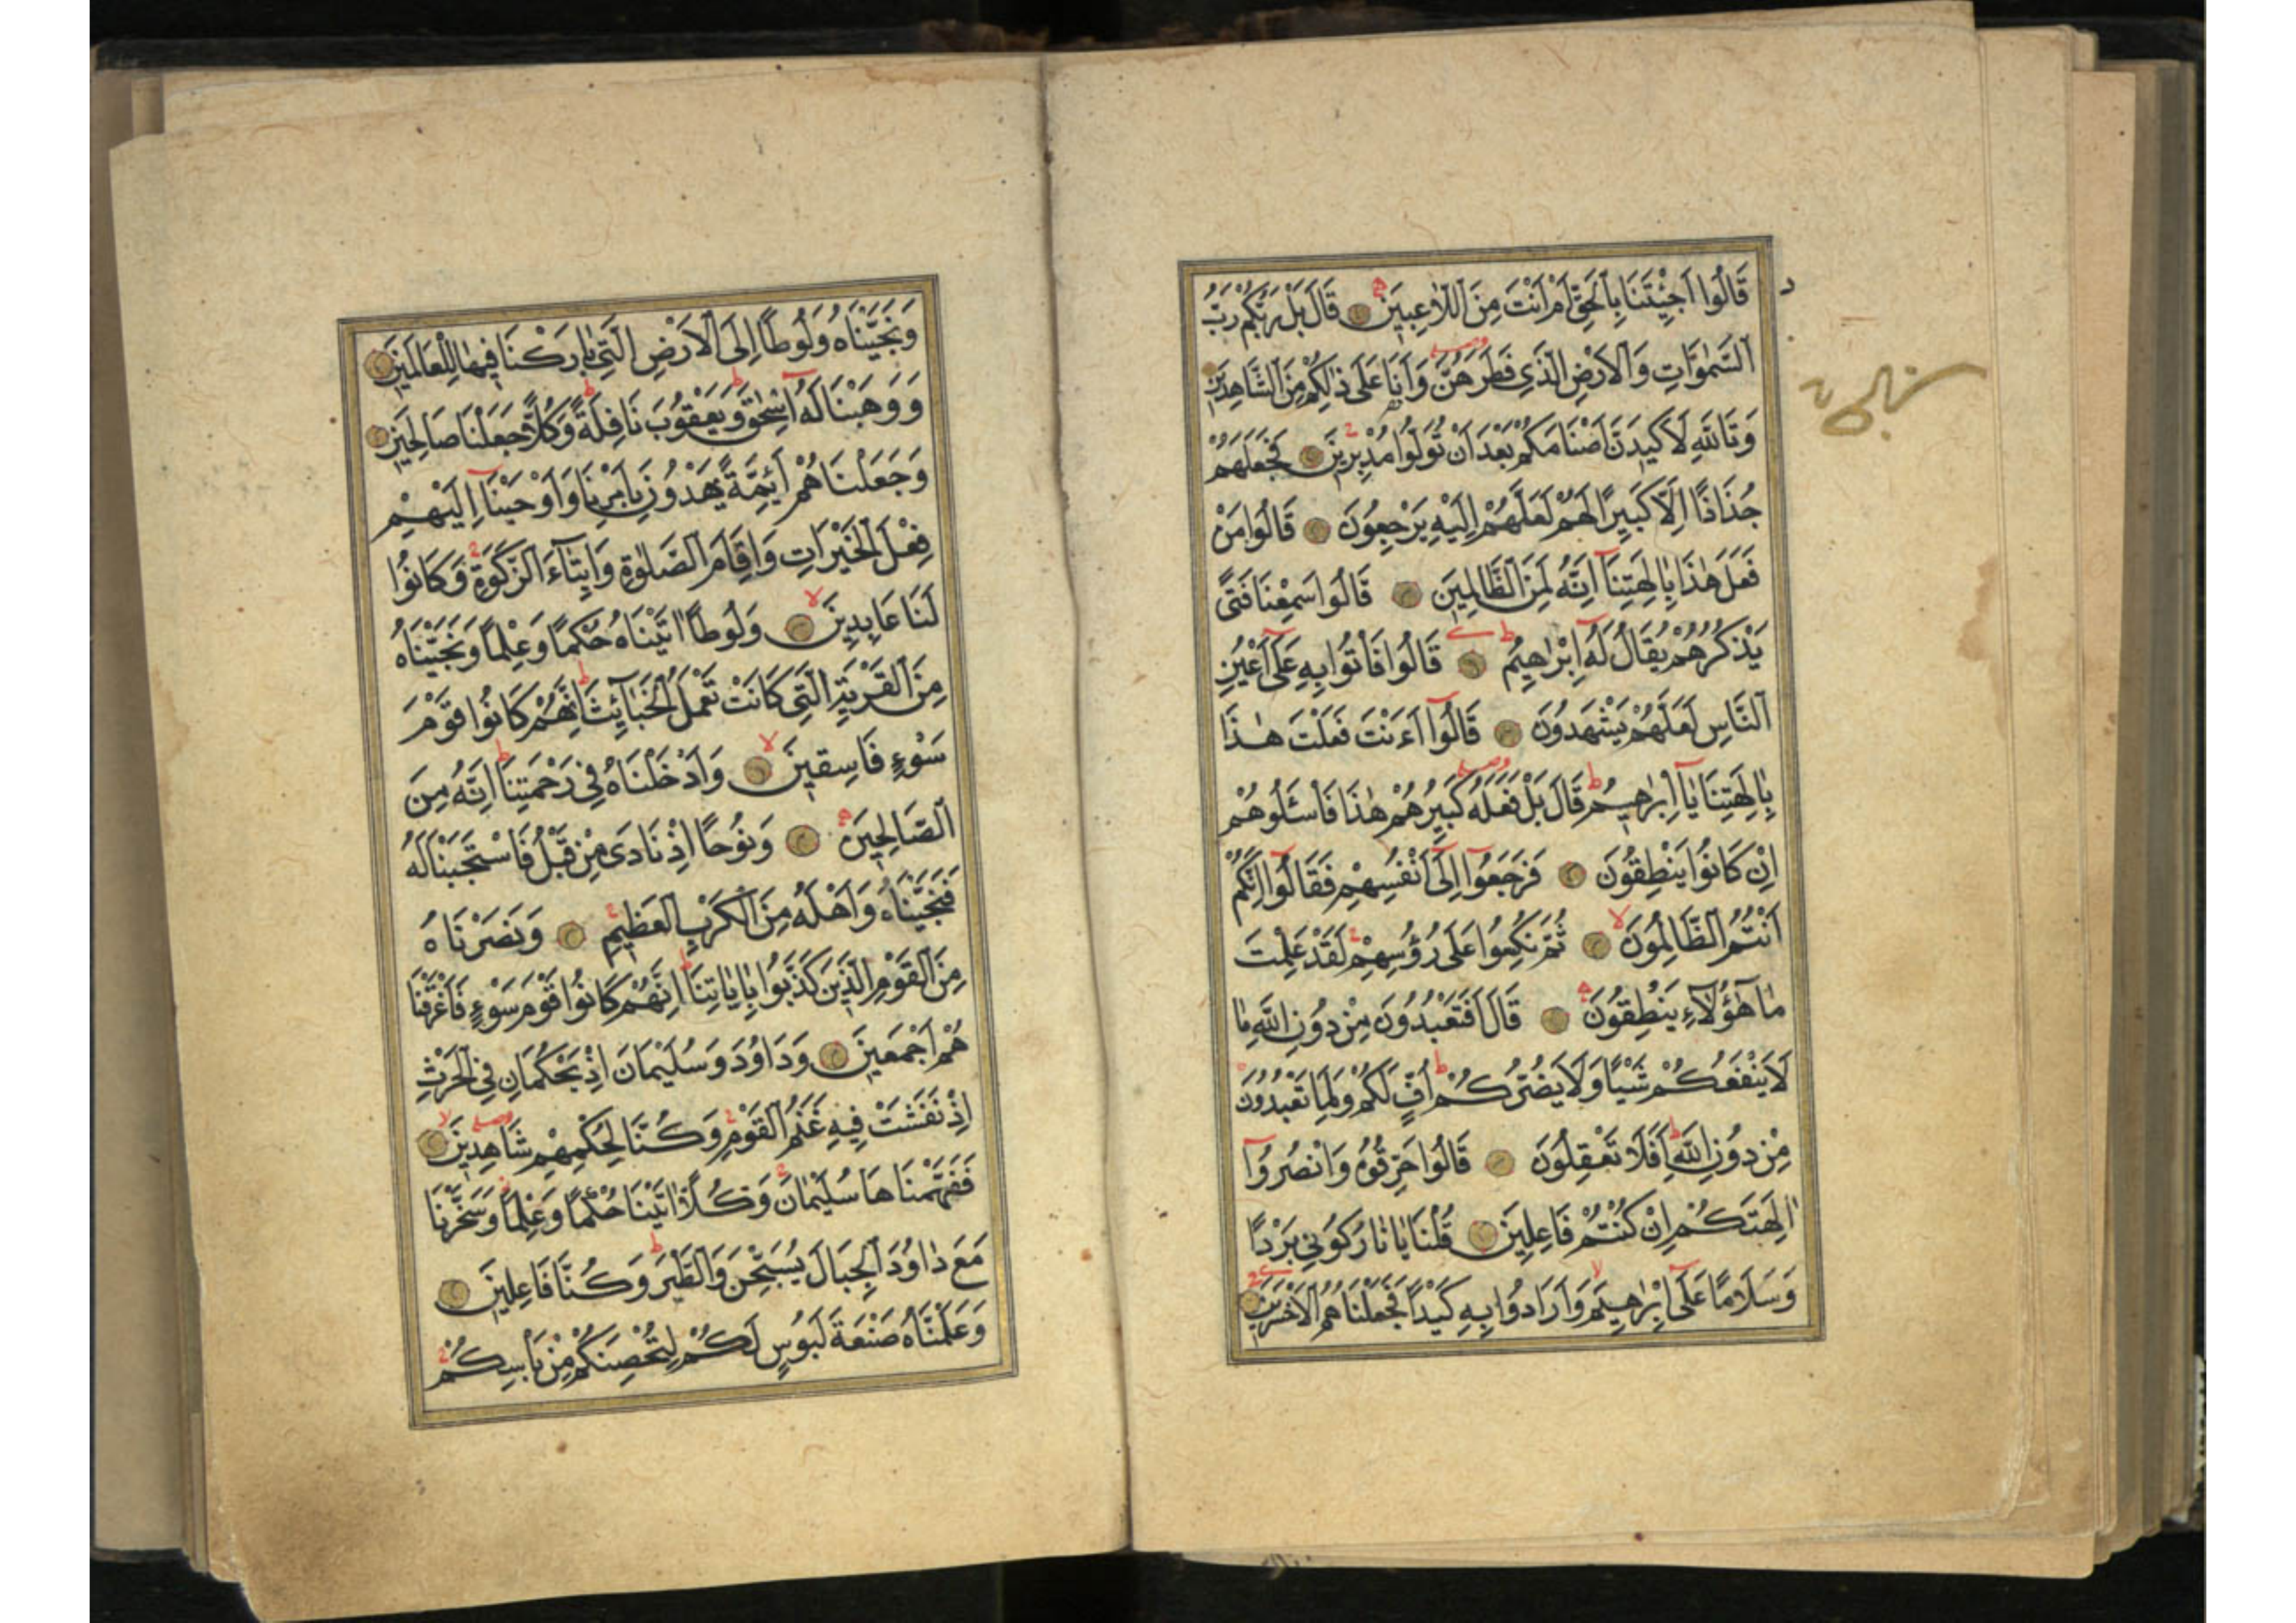 قَالُوا اَجِئْتَنَا بِالْحَقِّ اَمْ اَنْتَ مِنَ اللَّاعِبِينَ قَالَ بَلْ رَبُّكُمْ رَبُّ
السَّمٰوَاتِ وَالْاَرْضِ الَّذِى فَطَرَهُنَّ وَاَنَا عَلٰى ذٰلِكُمْ مِنَ الشَّاهِدِينَ
وَتَاللّٰهِ لَاَكِيدَنَّ اَصْنَامَكُمْ بَعْدَ اَنْ تُوَلُّوا مُدْبِرِينَ فَجَعَلَهُمْ
جُذَاذًا اِلَّا كَبِيرًا لَهُمْ لَعَلَّهُمْ اِلَيْهِ يَرْجِعُونَ قَالُوا مَنْ
فَعَلَ هٰذَا بِاٰلِهَتِنَٓا اِنَّهُ لَمِنَ الظَّالِمِينَ قَالُوا سَمِعْنَا فَتًى
يَذْكُرُهُمْ يُقَالُ لَهُٓ اِبْرٰهِيمُ قَالُوا فَأْتُوا بِهِ عَلٰٓى اَعْيُنِ
النَّاسِ لَعَلَّهُمْ يَشْهَدُونَ قَالُوٓا ءَاَنْتَ فَعَلْتَ هٰذَا
بِاٰلِهَتِنَا يَٓا اِبْرٰهِيمُ قَالَ بَلْ فَعَلَهُ كَبِيرُهُمْ هٰذَا فَاسْئَلُوهُمْ
اِنْ كَانُوا يَنْطِقُونَ فَرَجَعُوٓا اِلٰٓى اَنْفُسِهِمْ فَقَالُوٓا اِنَّكُمْ
اَنْتُمُ الظَّالِمُونَ ثُمَّ نُكِسُوا عَلٰى رُؤُسِهِمْ لَقَدْ عَلِمْتَ
مَا هٰٓؤُلَٓاءِ يَنْطِقُونَ قَالَ اَفَتَعْبُدُونَ مِنْ دُونِ اللّٰهِ مَا
لَا يَنْفَعُكُمْ شَيْئًا وَلَا يَضُرُّكُمْ اُفٍّ لَكُمْ وَلِمَا تَعْبُدُونَ
مِنْ دُونِ اللّٰهِ اَفَلَا تَعْقِلُونَ قَالُوا حَرِّقُوهُ وَانْصُرُوٓا
اٰلِهَتَكُمْ اِنْ كُنْتُمْ فَاعِلِينَ قُلْنَا يَا نَارُ كُونِى بَرْدًا
وَسَلَامًا عَلٰٓى اِبْرٰهِيمَ وَاَرَادُوا بِهِ كَيْدًا فَجَعَلْنَاهُمُ الْاَخْسَرِينَ
وَنَجَّيْنَاهُ وَلُوطًا اِلَى الْاَرْضِ الَّتِى بَارَكْنَا فِيهَا لِلْعَالَمِينَ
وَوَهَبْنَا لَهُٓ اِسْحٰقَ وَيَعْقُوبَ نَافِلَةً وَكُلًّا جَعَلْنَا صَالِحِينَ
وَجَعَلْنَاهُمْ اَئِمَّةً يَهْدُونَ بِاَمْرِنَا وَاَوْحَيْنَٓا اِلَيْهِمْ
فِعْلَ الْخَيْرَاتِ وَاِقَامَ الصَّلٰوةِ وَاِيتَٓاءَ الزَّكٰوةِ وَكَانُوا
لَنَا عَابِدِينَ وَلُوطًا اٰتَيْنَاهُ حُكْمًا وَعِلْمًا وَنَجَّيْنَاهُ
مِنَ الْقَرْيَةِ الَّتِى كَانَتْ تَعْمَلُ الْخَبَٓائِثَ اِنَّهُمْ كَانُوا قَوْمَ
سَوْءٍ فَاسِقِينَ وَاَدْخَلْنَاهُ فِى رَحْمَتِنَا اِنَّهُ مِنَ
الصَّالِحِينَ وَنُوحًا اِذْ نَادٰى مِنْ قَبْلُ فَاسْتَجَبْنَا لَهُ
فَنَجَّيْنَاهُ وَاَهْلَهُ مِنَ الْكَرْبِ الْعَظِيمِ وَنَصَرْنَاهُ
مِنَ الْقَوْمِ الَّذِينَ كَذَّبُوا بِاٰيَاتِنَا اِنَّهُمْ كَانُوا قَوْمَ سَوْءٍ فَاَغْرَقْنَا
هُمْ اَجْمَعِينَ وَدَاوُدَ وَسُلَيْمَانَ اِذْ يَحْكُمَانِ فِى الْحَرْثِ
اِذْ نَفَشَتْ فِيهِ غَنَمُ الْقَوْمِ وَكُنَّا لِحُكْمِهِمْ شَاهِدِينَ
فَفَهَّمْنَاهَا سُلَيْمَانَ وَكُلًّا اٰتَيْنَا حُكْمًا وَعِلْمًا وَسَخَّرْنَا
مَعَ دَاوُدَ الْجِبَالَ يُسَبِّحْنَ وَالطَّيْرَ وَكُنَّا فَاعِلِينَ
وَعَلَّمْنَاهُ صَنْعَةَ لَبُوسٍ لَكُمْ لِتُحْصِنَكُمْ مِنْ بَأْسِكُمْ